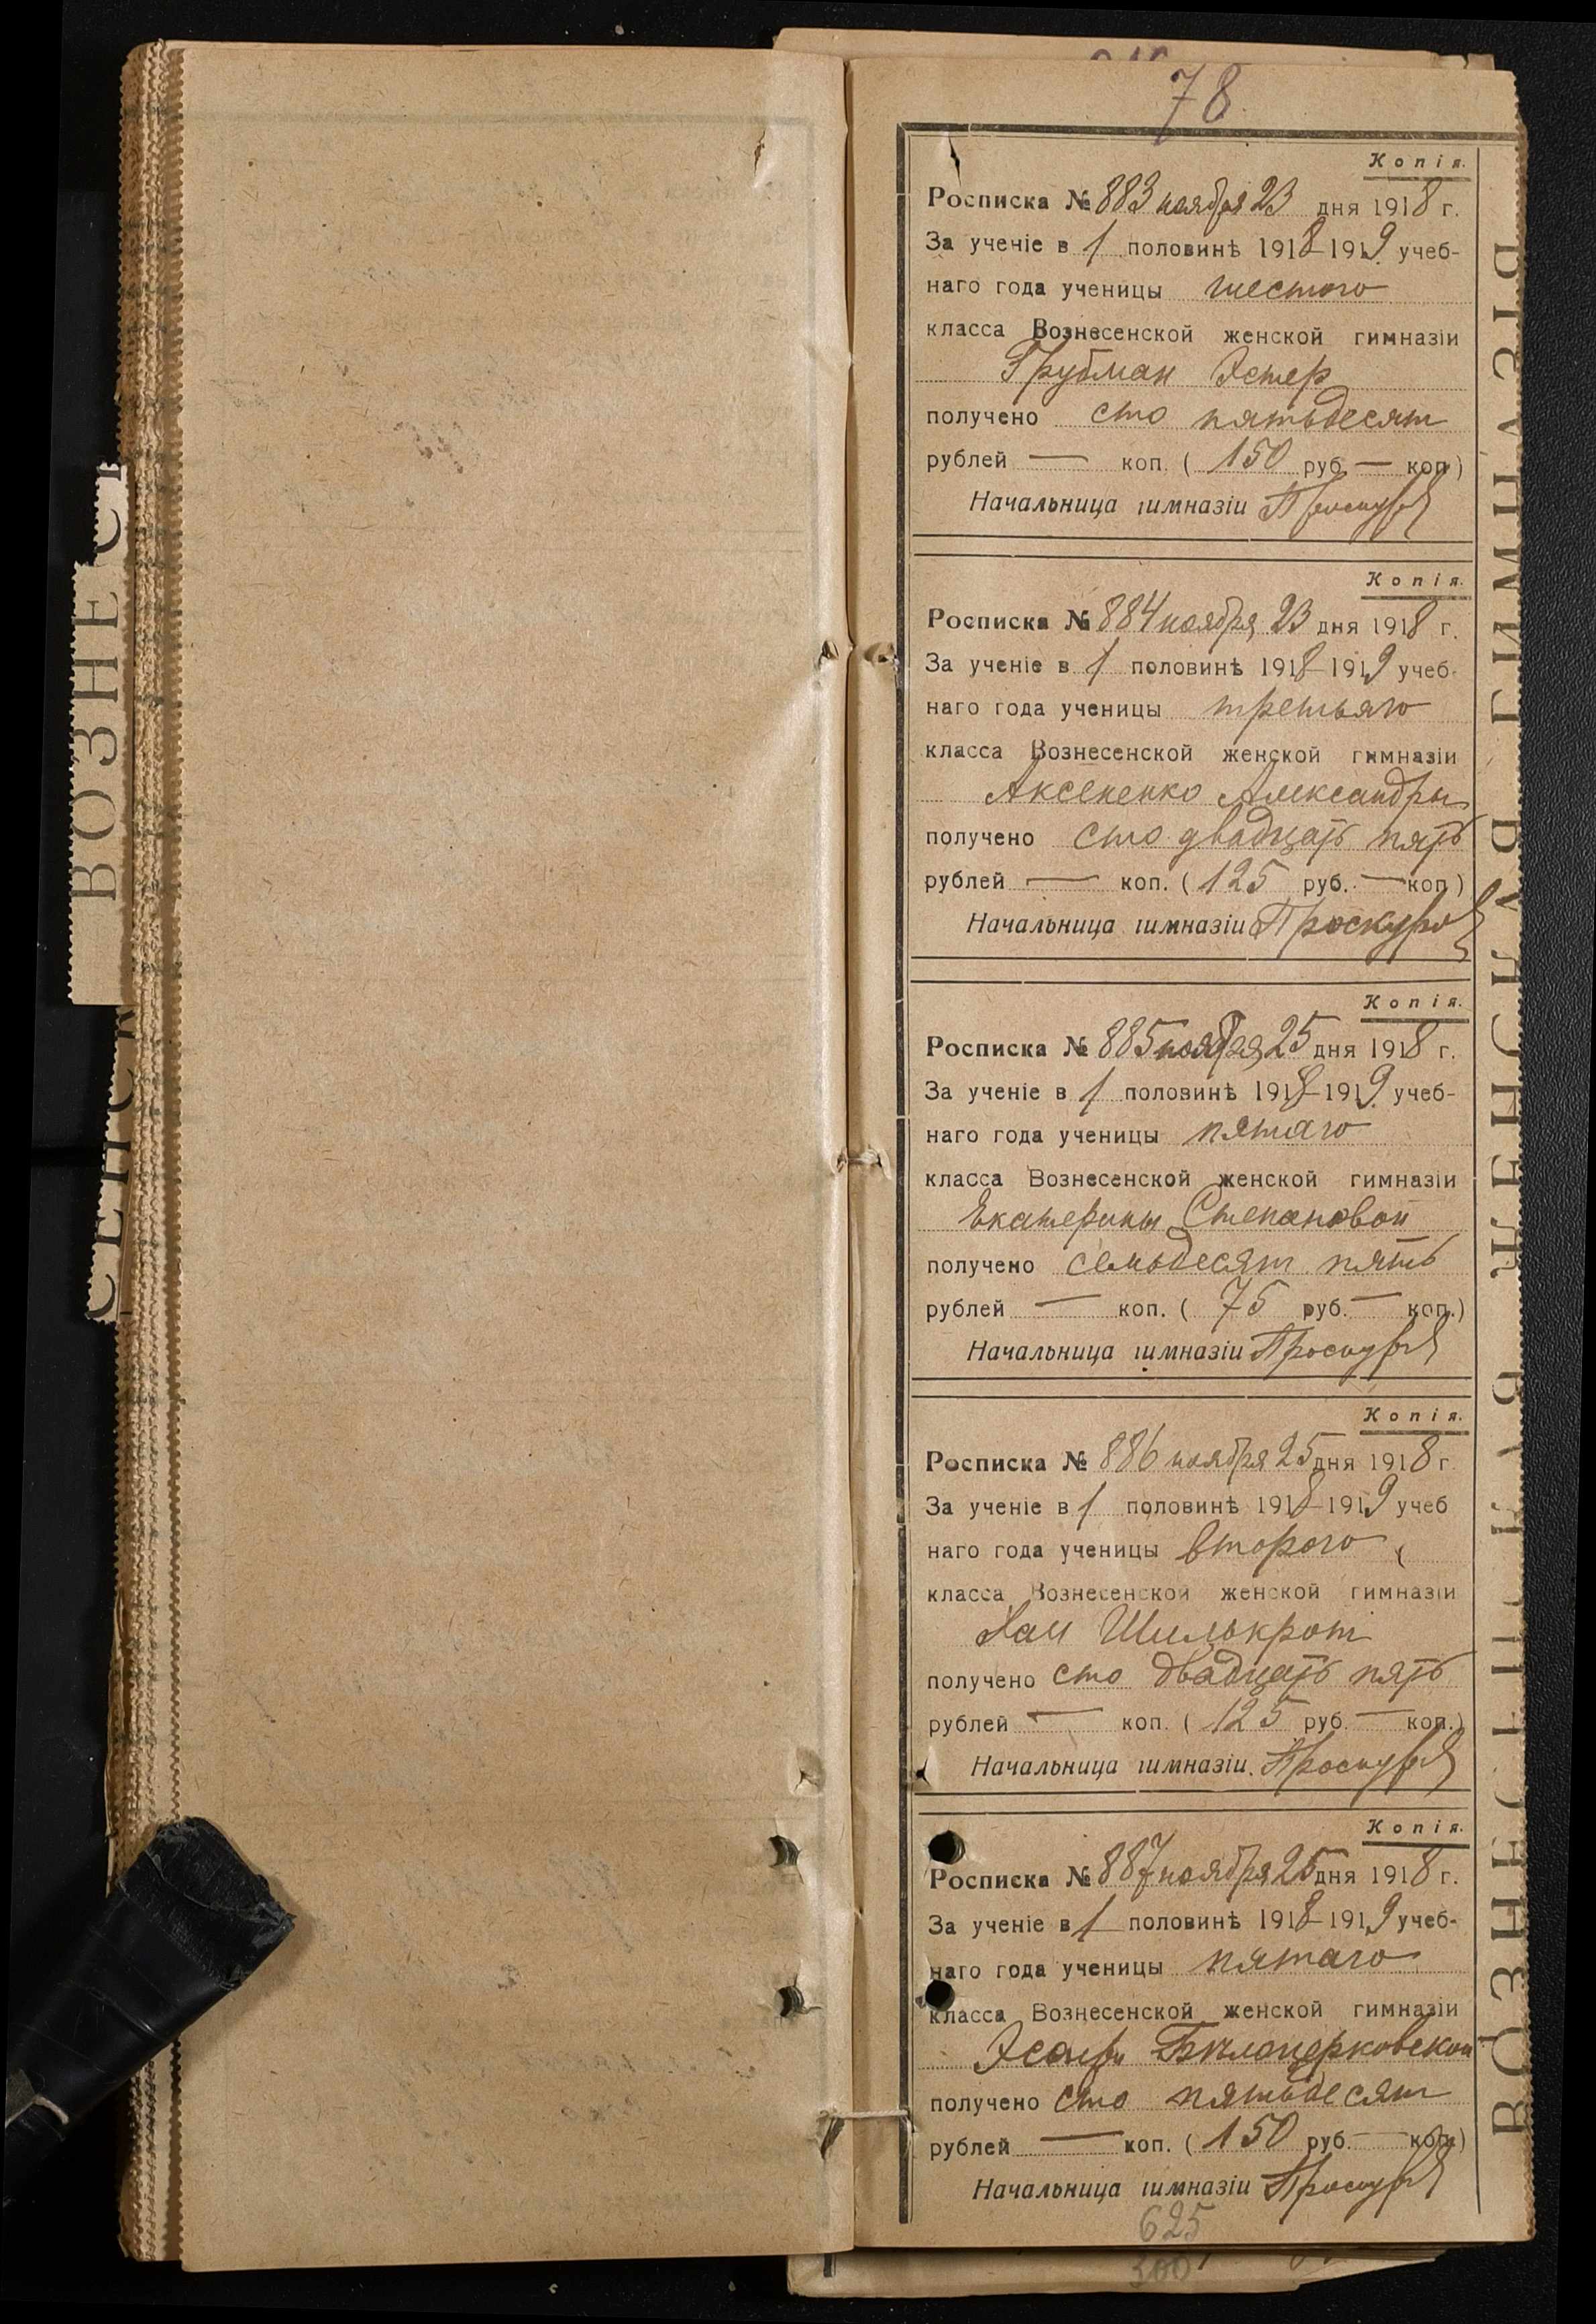 78
Копія.
Росписка № 883 ноября 23 дня 1918 г.
За ученіе в 1 половинѣ 1918-1919 учеб-
наго года ученицы шестого
класса Вознесенской женской гимназіи
Грубман Эстер
получено сто пятьдесят
рублей — коп. ( 150 руб. — коп.)
Начальница гимназіи
Копія.
Росписка № 884 ноября 23 дня 1918 г.
За ученіе в 1 половинѣ 1918-1919 учеб-
наго года ученицы третьяго
класса Вознесенской женской гимназіи
Аксененко Александры
получено сто двадцать пять
рублей — коп. ( 125 руб. — коп.)
Начальница гимназіи
Копія.
Росписка № 885 ноября 25 дня 1918 г.
За ученіе в 1 половинѣ 1918-1919 учеб-
наго года ученицы пятаго
класса Вознесенской женской гимназіи
Екатерины Степановой
получено семьдесят пять
рублей — коп. ( 75 руб. — коп.)
Начальница гимназіи
Копія.
Росписка № 886 ноября 25 дня 1918 г.
За ученіе в 1 половинѣ 1918-1919 учеб
наго года ученицы второго
класса Вознесенской женской гимназіи
Шилькрот
получено сто двадцать пять
рублей — коп. ( 125 руб. — коп.)
Начальница гимназіи
Копія.
Росписка № 887 ноября 25 дня 1918 г.
За ученіе в 1 половинѣ 1918-1919 учеб-
наго года ученицы пятаго
класса Вознесенской женской гимназіи
Бѣлоцерковской
получено сто пятьдесят
рублей — коп. ( 150 руб. — коп.)
Начальница гимназіи
625
300
ВОЗНЕ